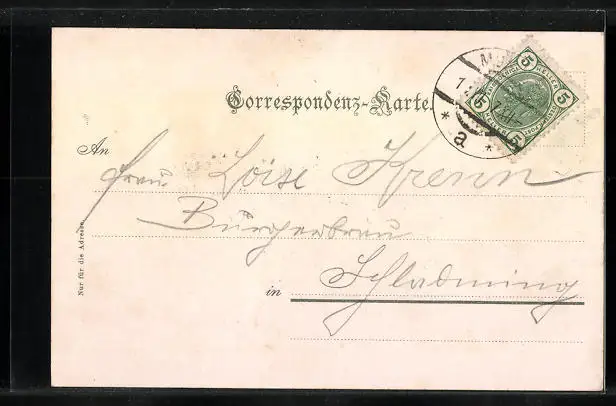 Correspondenz-Karte.
An
Frau Loise Krenn
Bürgerbräu
in Schladming
Nur für die Adresse
5 5
5 5
HELLER
* a *